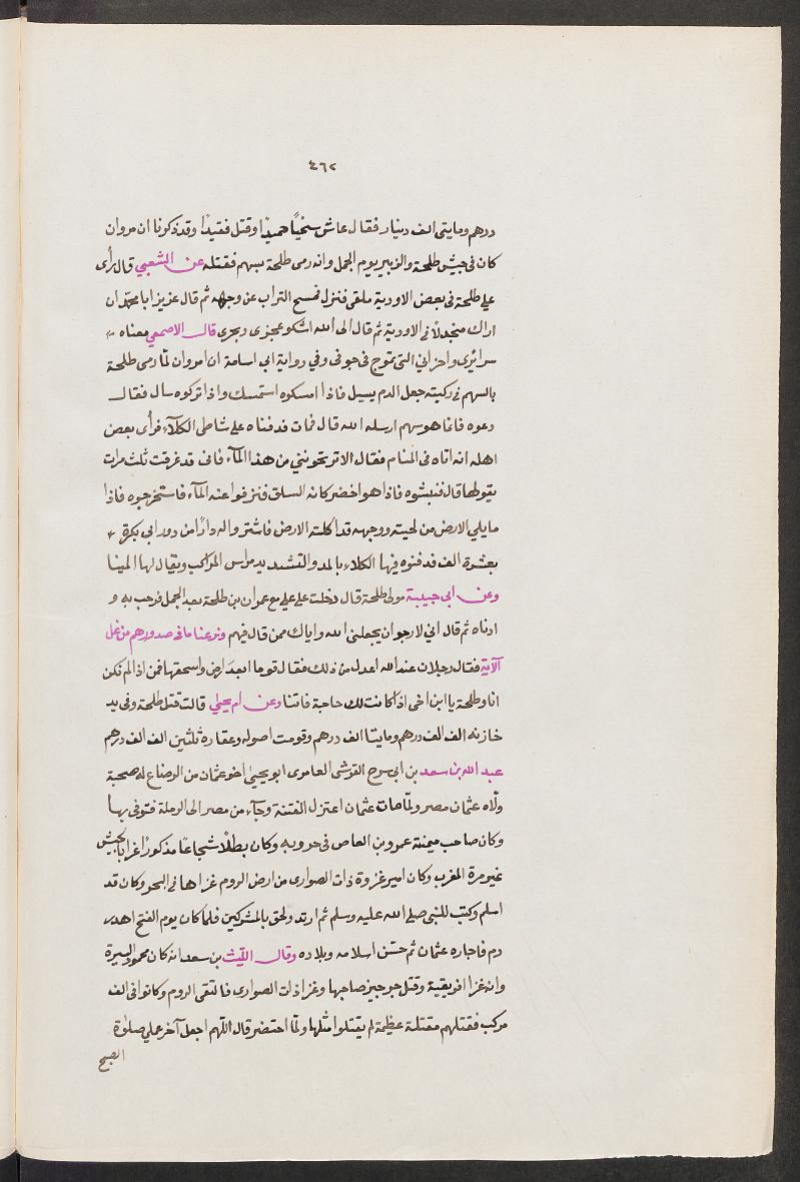 ٤٦٢
درهم ومايتى الف دينار فقال عاش سخيًا حميدًا وقتل فقيدًا وقد ذكرنا ان مروان
كان فى جيش طلحة والزبير يوم الجمل وانه رمى طلحة بسهم فقتله عن الشعبي قال رأى
على طلحة فى بعض الاودية ملقى فنزل فمسح التراب عن وجهه ثم قال عزيز ابا محمد ان
اراك منجدلًا فى الاودية ثم قال الى الله اشكو عجرى وبجرى قال الاصمعي معناه
سرائرى واحزانى التى تموج فى جوفى وفي رواية ابى اسامة ان مروان لمّا رمى طلحة
بالسهم فى ركبته جعل الدم يسيل فاذا امسكوه استمسك واذا تركوه سال فقال
دعوه فانما هو سهم ارسله الله قال فمات فدفناه على شاطى الكلآء فرأى بعض
اهله انه اتاه فى المنام فقال الا تريحوننى من هذا المآء فانى قد غرقت ثلث مرات
يقولها قال فنبشوه فاذا هو اخضر كانه السلق فنزفوا عنه المآء فاستخرجوه فاذا
مايلي الارض من لحيته ووجهه قد اكلته الارض فاشتروا له دارًا من دور ابى بكرة
بعشرة الف فدفنوه فيها الكلاء بالمد والتشديد مراس المراكب ويقال لها المينا
وعن ابى حبيبة مولى طلحة قال دخلت على علي مع عمران بن طلحة بعد الجمل فرحب به و
ادناه ثم قال انى لارجو ان يجعلنى الله واياك ممن قال فيهم ونزعنا ما فى صدورهم من غل
الآية فقال رجلان عند الله اعدل من ذلك فقال قوما ابعد ارض واسحقها فمن اذا لم نكن
انا وطلحة يا ابن اخى اذا كانت لك حاجة فاتنا وعن ام يحيى قالت قتل طلحة وفى يد
خازنه الف الف درهم ومايتا الف درهم وقومت اصوله وعقاره ثلثين الف الف درهم
عبد الله بن سعد بن ابى سرح القرشى العامرى ابو يحيى اخو عثمان من الرضاع له صحبة
ولّاه عثمان مصر ولمّا مات عثمان اعتزل الفتنة وجآء من مصر الى الرملة فتوفى بها
وكان صاحب ميمنة عمرو بن العاص فى حروبه وكان بطلًا شجاعًا مذكورًا غزا بالجيش
غير مرة المغرب وكان امير غزوة ذات الصوارى من ارض الروم غزاها فى البحر وكان قد
اسلم وكتب للنبى صلى الله عليه وسلم ثم ارتد ولحق بالمشركين فلما كان يوم الفتح اهدر
دم فاجاره عثمان ثم حسن اسلامه وبلاده وقال الليث بن سعد انه كان محمود السيرة
وانه غزا افريقية وقتل جرجيز صاحبها وغزا ذات الصوارى فالتقى الروم وكانوا فى الف
مركب فقتلهم مقتلة عظيمة لم يقتلوا مثلها ولمّا احتضر قال اللهم اجعل آخر عملي صلوة
الصبح